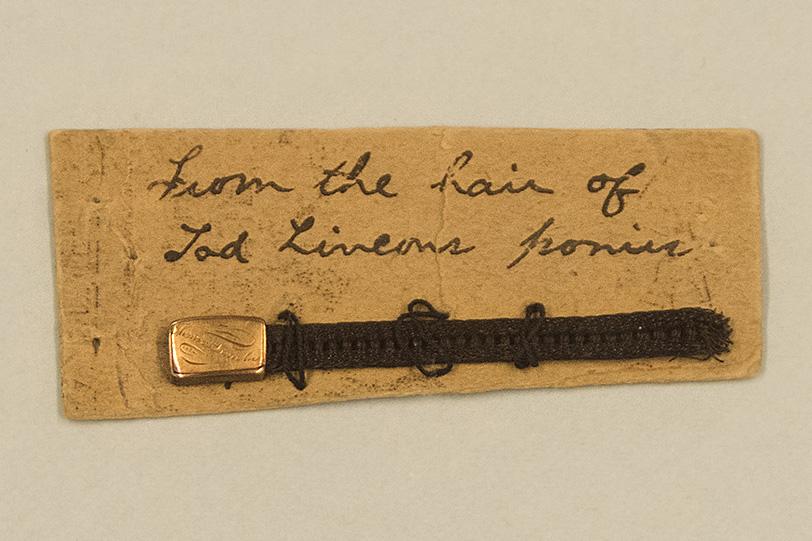 From the hair of
Tad Lincons ponies